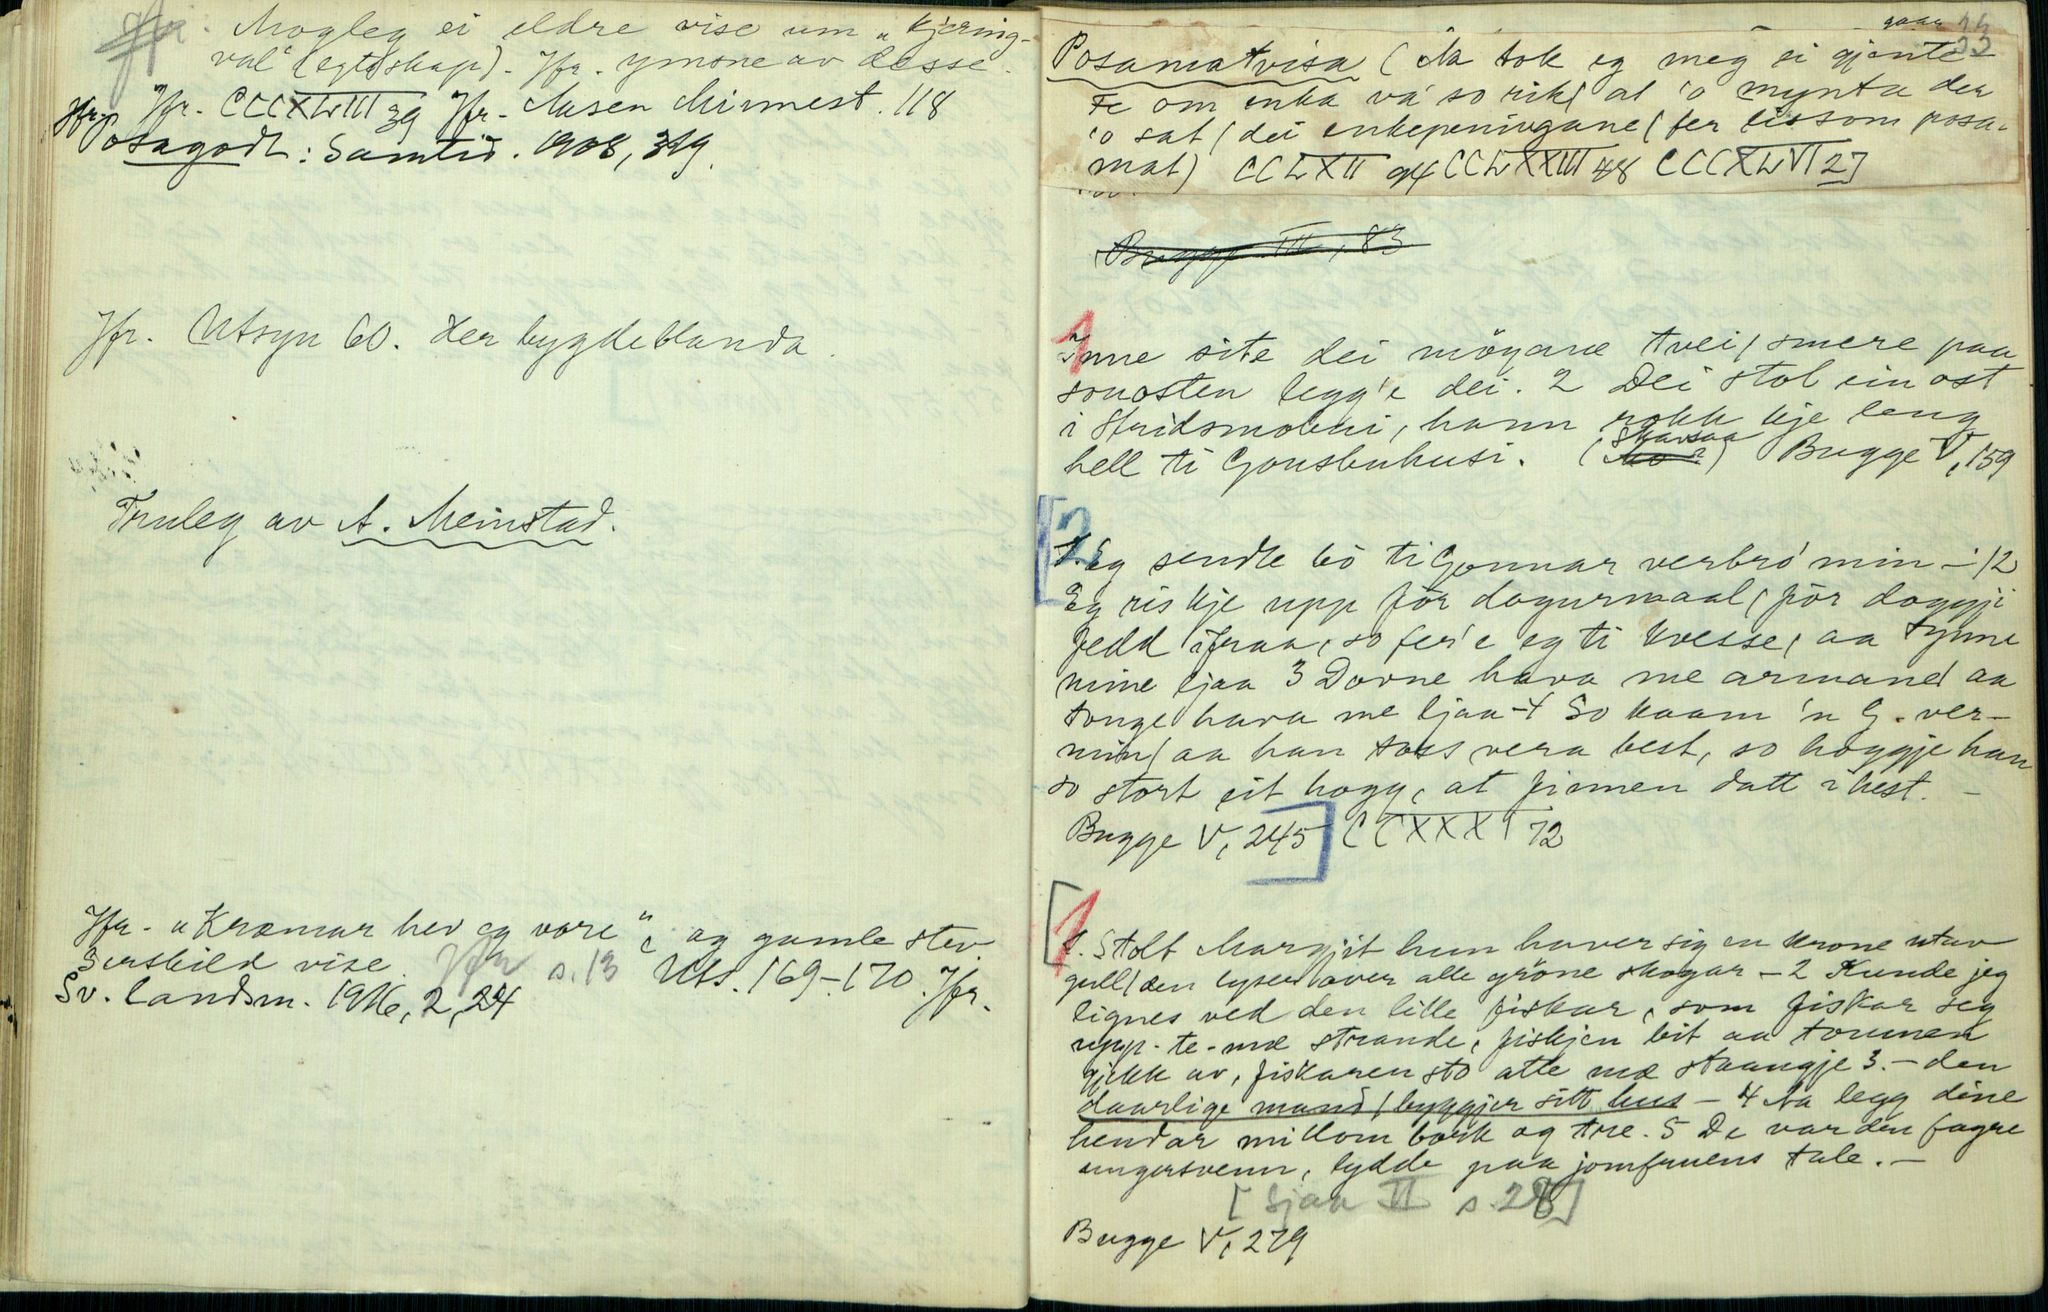 Jfr. Mogleg ei eldre vise um "kjering-
val" (egteskap). Jfr. ymsne av desse.
Jfr. Jfr. CCCXLVIII 39 Jfr. Aasen Minnest. 118
Posagodt: Samtid. 1908, 319.
Jfr. Utsyn 60. Der bygdeblanda.
Truleg av A. Meinstad.
Jfr. "Kræmar hev eg vore", og gamle stev.
Serskild vise. Jfr s. 13 Uts. 169-170. Jfr.
Sv. landsm. 1916, 2, 24
33
gaar
Posamatvisa (Aa tok eg meg ei gjente
Fe om enka va so rik/ at 'o mynta der
'o sat/ dei enkepeningane/ fer lissom posa-
mat) CCLXII 94 CCLXXIII 48 CCCXLVI 27
Bugge III, 83
1
Inne site dei möyane tvei/ smere paa
sonosten legg'e dei. 2 Dei stol ein ost
i Stridsmoeni, hann rokk kje leng
hell ti Gonsbuhusi. (Skarsaa) Bugge V, 159
[2
1. Eg sendte bö ti Gonnar verbro' min - /2
Eg ris kje upp för dogurmaal, för doggji
fedd ifraa, so fer'e eg ti kvesse, aa tynne
mine ljaa 3 Dovne hava me armane/ aa
tonge hava me ljaa - 4 So kaam 'n G. ver-
min/ aa han toss vera best, so hoggje han
so stort eit hogg, at finnen datt i hest. -
Bugge V, 245] CCXXXI 72
[1
1. Stolt Margjit hun haver sig en krone utav
gull/ den lyser over alle gröne skogar - 2 Kunde jeg
lignes ved den lille fiskar, som fiskar seg
upp-te-mæ strande, fiskjen bit aa tommen
gjekk av, fiskaren sto atte mæ staangje 3. - den
daarlige mand/ byggjer sitt hus - 4 Aa legg dine
hendar millom bork og tre. 5 De var den fagre
ungersvenn, lydde paa jomfruens tale. -
[Sjaa II s. 28]
Bugge V, 279